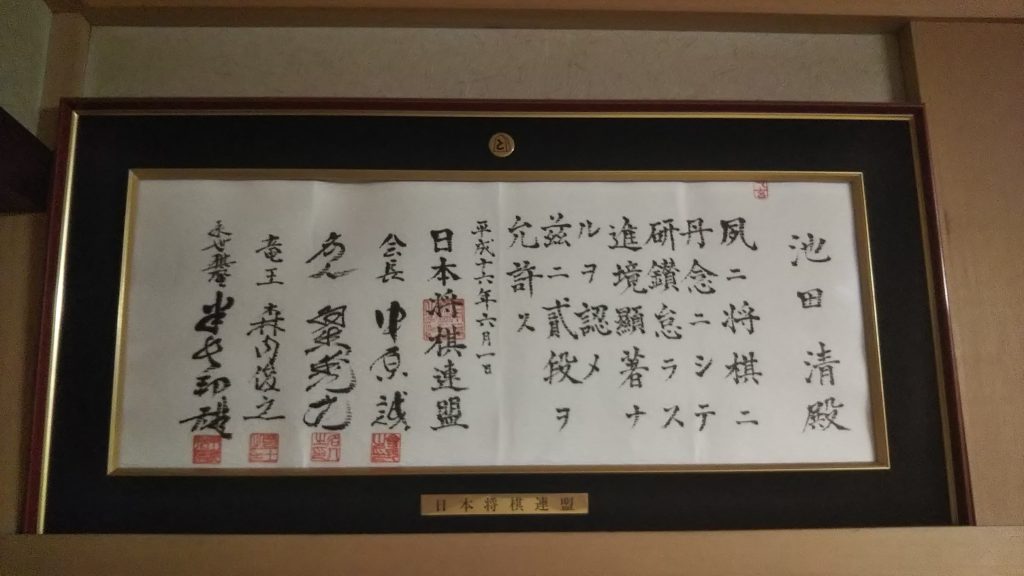 池田清殿
夙ニ将棋ニ
丹念ニシテ
研鑽怠ラス
進境顯著ナ
ルヲ認メ
茲ニ貳段ヲ
允許ス
平成十六年六月一日
日本将棋連盟
会長 中原誠
名人 羽生善治
竜王 森内俊之
永世棋聖 米長邦雄
日本将棋連盟